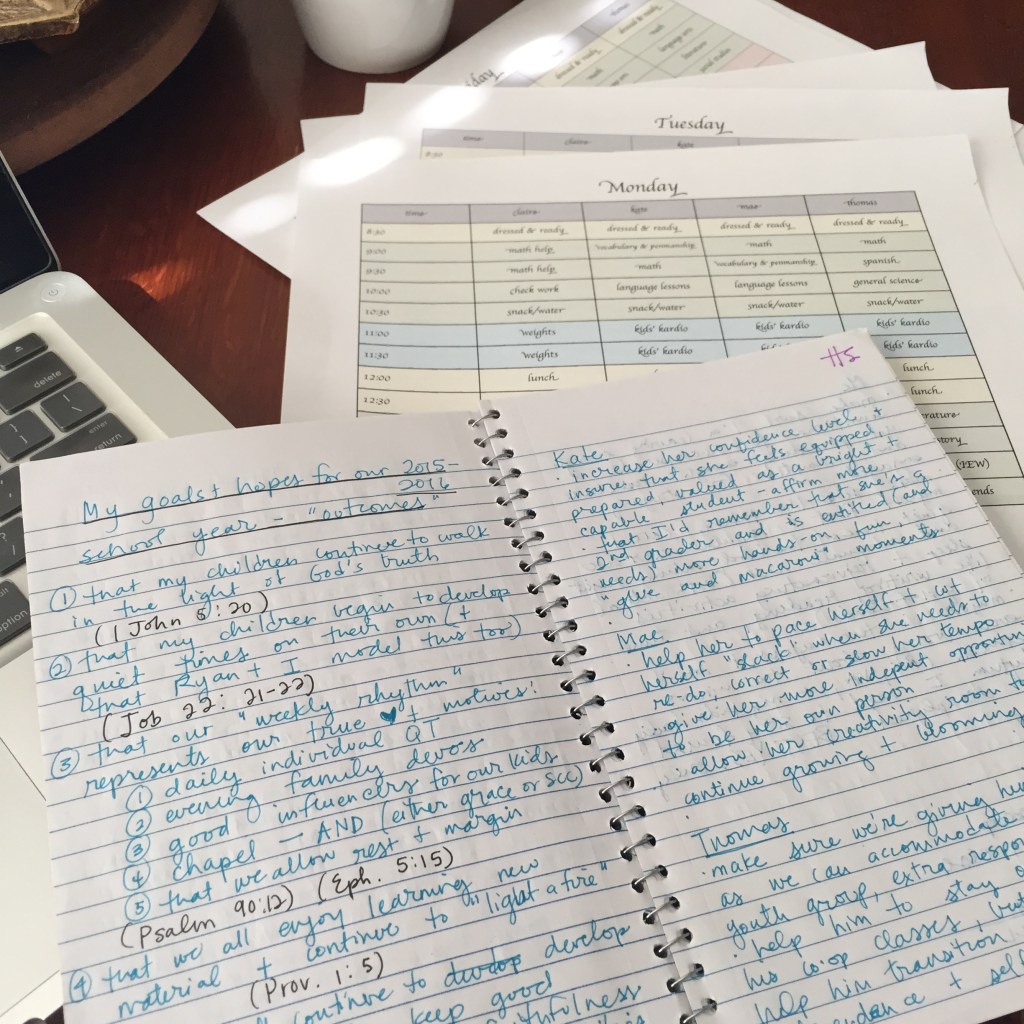 Tuesday
time claire kate
Monday
time claire kate mae thomas
8:30 dressed & ready dressed & ready dressed & ready dressed & ready
9:00 math help vocabulary & penmanship math math
9:30 math help math vocabulary & penmanship spanish
10:00 check work language lessons language lessons general science
10:30 snack/water snack/water snack/water snack/water
11:00 weights kids' kardio kids' kardio kids' kardio
11:30 weights kids' kardio kids' kardio
12:00 lunch lunch
12:30 lunch
delete
enter
return
option
My goals + hopes for our 2015-
2016
school year - "outcomes"
① that my children continue to walk
in the light of God's truth
(1 John 5:20)
② that my children begin to develop
quiet times on their own (+
that Ryan + I model this too)
(Job 22: 21-22)
③ that our "weekly rhythm"
represents our true ♥ + motives:
① daily individual QT
② evening family devos
③ good influencers for our kids
④ chapel - AND (either grace or SCC)
⑤ that we allow rest + margin
(Psalm 90:12) (Eph. 5:15)
④ that we all enjoy learning new
material + continue to "light a fire"
(Prov. 1:5)
continue to develop
keep good
#5
Kate
· increase her confidence level +
insure that she feels equipped,
prepared, valued as a bright +
capable student - affirm more
· that I'd remember that she's a
2nd grader and is entitled (and
needs) more hands-on fun,
"glue and macaroni" moments
Mae
· help her to pace herself + let
herself "slack" when she needs to
re-do, correct or slow her tempo
· give her more indepent
to be her own person
· allow her creativity room to
continue growing + blooming
Thomas
· make sure we're giving
as we can accommodate
youth group, extra
· help him to stay
his co-op classes,
help him transition